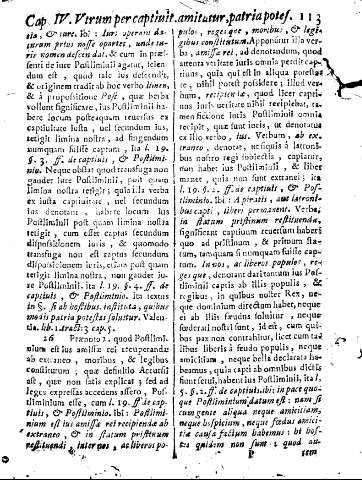 Cap. IV. Utrum per captiuit. amitatur, patria potes. 113
tia, & iure. ibi: Ius: operam da-
turum prius nosse oportet, unde iu-
ris nomen descendat. & cum in præ-
senti de iure Postliminii agatur, scien-
dum est, quod tale ius descendit,
& originem tradit ab hoc verbo limen,
& à propositione Post, quæ verba
vollunt significare, ius Postliminii ha-
bere locum posteaquam reuersus ex
captiuitate iusta, vel secundum ius,
tetigit limina nostra, ad fingendum
numquam fuisse captum, ita l. 19.
§. 3. ff. de captiuis, & Postlimi-
nio. Neque obstat quod transfuga non
gaudet iure Postliminii, per quam
limina nostra tetigit; quia illa verba
ex iusta captiuitate, vel secundum
ius denotant, habere locum ius
Postliminii post quam limina nostra
tetigit, cum esset captus secundum
dispositionem iuris, & quomodo
transfuga non est captus secundum
dispositionem iuris, etiam post quam
tetigit limina nostra, non gaudet iu-
re Postliminii. ita l. 19. §. 4. ff. de
captiuis, & Postliminio. ita textus
in §. si ab hostibus. instituta, quibus
modis patria potestas soluitur. Valen-
dia, lib. 1. tract. 3. cap. 5.
26 Prænoto 2. quod Postlimi-
nium est ius amissæ rei recuperandæ
ab extraneo, moribus, & legibus
constitutum; quæ definitio Accursii
est, quæ non satis explicat; sed ad
leges expressas accedens assero, Post-
liminium esse, cum l. 19. ff. de cap-
tiuis, & Postliminio. ibi: Postlimi-
nium est ius amissæ rei recipiendæ ab
extraneo, & in statum pristinum
restituendi, inter nos, ac liberos po-
pulos, reges que, moribus, & legi-
gibus constitutum. Apponitur illa ver-
ba, amissæ rei, ad denotandum, quod
attenta veritate iuris omnia perdit cap-
tiuus, quia qui est in aliqua potesta-
te, nihil potest possidere, illud ver-
bum, recipiendæ, quod licet capti-
uus iuris veritate nihil recipiebat, ta-
men fictione iuris Postliminii omnia
recipit, quæ sunt incis, ut denotatur
ex illo verbo, ius. Verbum, ab ex-
traneo, denotat, ut si quis à latroni-
bus nostro regi subiectis, capiatur,
non habet ius Postliminii, liber re-
manet, quia non sunt extranei; ita
l. 19. §. 2. ff. de captiuis, & Pos-
tliminio. ibi: A piratis, aut latroni-
bus capti, liberi permanent. Verba,
in statum pristinum restituendæ,
significant captiuum reuersum habere
quo ad pristinum, & primum sta-
tum, tamquam si nunquam fuisse cap-
tum. Inter nos, ac liberos populos, re-
ges que, denotant daritantum ius Pos-
tliminii captis ab illis populis, &
regibus, in quibus noster Rex, ne-
que dominium directum habet, neque
ei ab illis fœdus soluitur, neque
fœderati nostri sunt, id est, cum qui-
bus pax non contrahitur, licet cum ta-
libus liberis à feudo populis, neque
amicitiam, neque bella declarata ha-
beamus, quia capti ab omnibus dictis
sunt serui, habent ius Postliminii, ita l.
5. §. 2. ff. de captiuis. ibi: in pace quo-
que Postliminium datum est: nam si
cum gente aliqua neque amicitiam,
neque hospicium, neque fœdus amici-
tiæ causa factum habemus: hi hos-
tes quidem non sunt: quod au-
P
tem